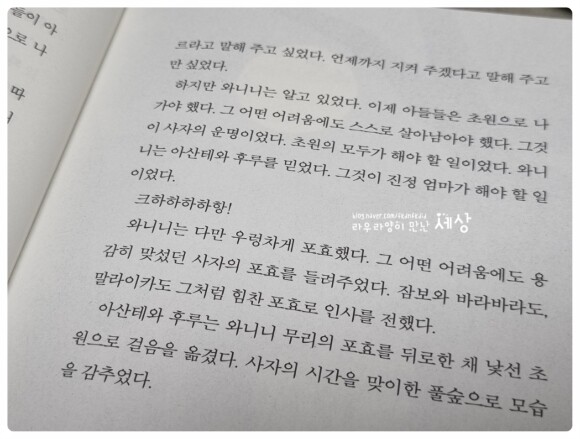 들이 아
으로 나
따
르라고 말해 주고 싶었다. 언제까지 지켜 주겠다고 말해 주고
만 싶었다.
하지만 와니니는 알고 있었다. 이제 아들들은 초원으로 나
가야 했다. 그 어떤 어려움에도 스스로 살아남아야 했다. 그것
이 사자의 운명이었다. 초원의 모두가 해야 할 일이었다. 와니
니는 아산테와 후루를 믿었다. 그것이 진정 엄마가 해야 할 일
이었다.
크하하하하항!
와니니는 다만 우렁차게 포효했다. 그 어떤 어려움에도 용
감히 맞섰던 사자의 포효를 들려주었다. 잠보와 바라바라도,
말라이카도 그처럼 힘찬 포효로 인사를 전했다.
아산테와 후루는 와니니 무리의 포효를 뒤로한 채 낯선 초
원으로 걸음을 옮겼다. 사자의 시간을 맞이한 풀숲으로 모습
을 감추었다.
라우라양이 만난 세상